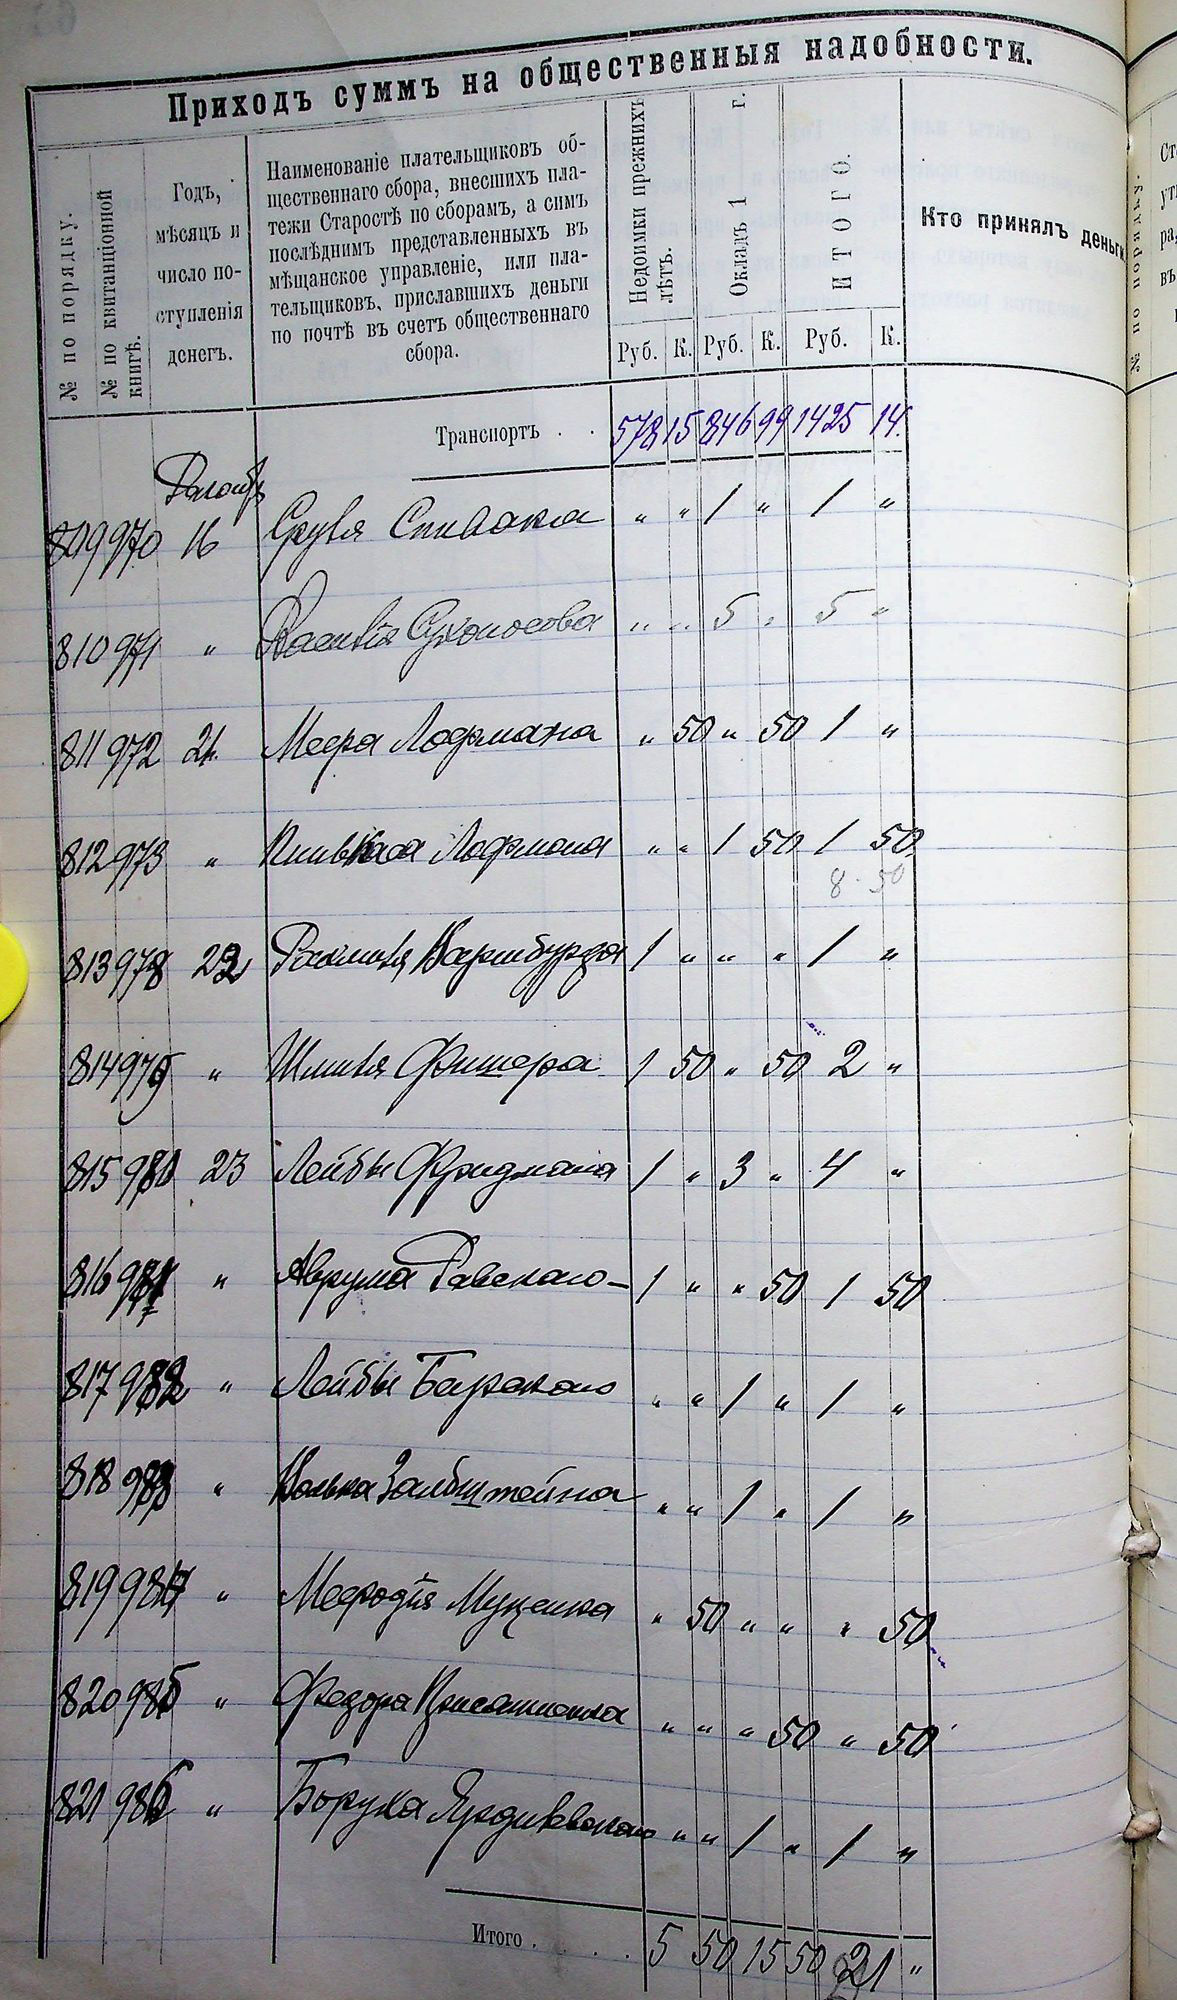 Приходъ суммъ на общественныя надобности.
№ по порядку.
№ по квитанціонной книгѣ.
Годъ,
мѣсяцъ и
число по-
ступленія
денегъ.
Наименованіе плательщиковъ об-
щественнаго сбора, внесшихъ пла-
тежи Старостѣ по сборамъ, а симъ
послѣднимъ представленныхъ въ
мѣщанское управленіе, или пла-
тельщиковъ, приславшихъ деньги
по почтѣ въ счетъ общественнаго
сбора.
Недоимки прежнихъ
лѣтъ.
Окладъ 1 г.
ИТОГО.
Кто принялъ деньги
Руб. К. Руб. К. Руб. К.
Транспортъ . . 578 15 846 99 1425 14.
809 970 16 Сруля Спивака " " 1 " 1 "
810 971 " Василія Сухоносова " " 5 " 5 "
811 972 21. Меера Лофмана " 50 " 50 1 "
812 973 " Пинькаса Лофмана " " 1 50 1 50
8 . 50
813 978 22 1 " " " 1 "
814 979 " Шмиля Фишера 1 50 " 50 2 "
815 980 23 Лейбы Фридмана 1 " 3 " 4 "
816 981 " Аврума Равскаго 1 " " 50 1 50
817 982 " Лейбы Барскаго " " 1 " 1 "
818 983 " " " 1 " 1 "
819 984 " Мефодія Муценка " 50 " " " 50
820 985 " Федора " " " 50 " 50
821 986 " Боруха " " 1 " 1 "
Итого . . . . 5 50 15 50 21 "